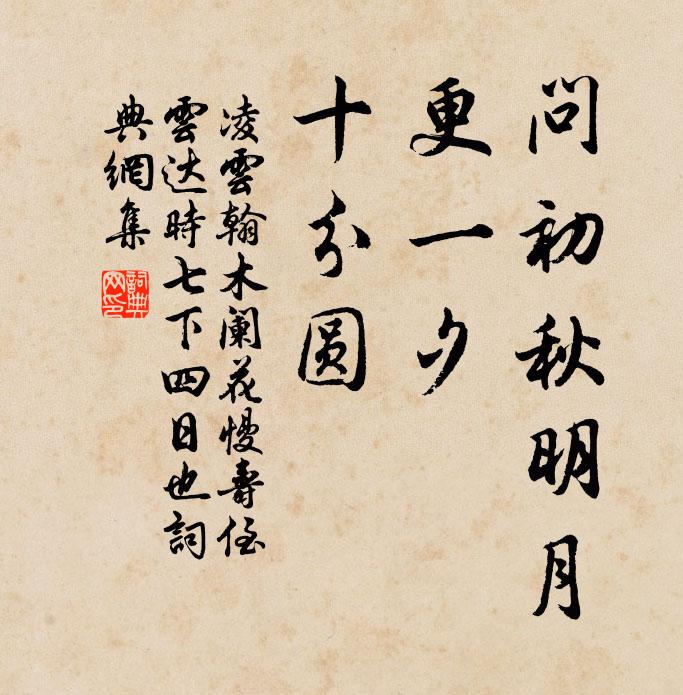 問初秋明月
更一夕
十分圆
凌雲翰木阑花慢壽侄
雲达時七下四日也詞
典網集
詞典
网印